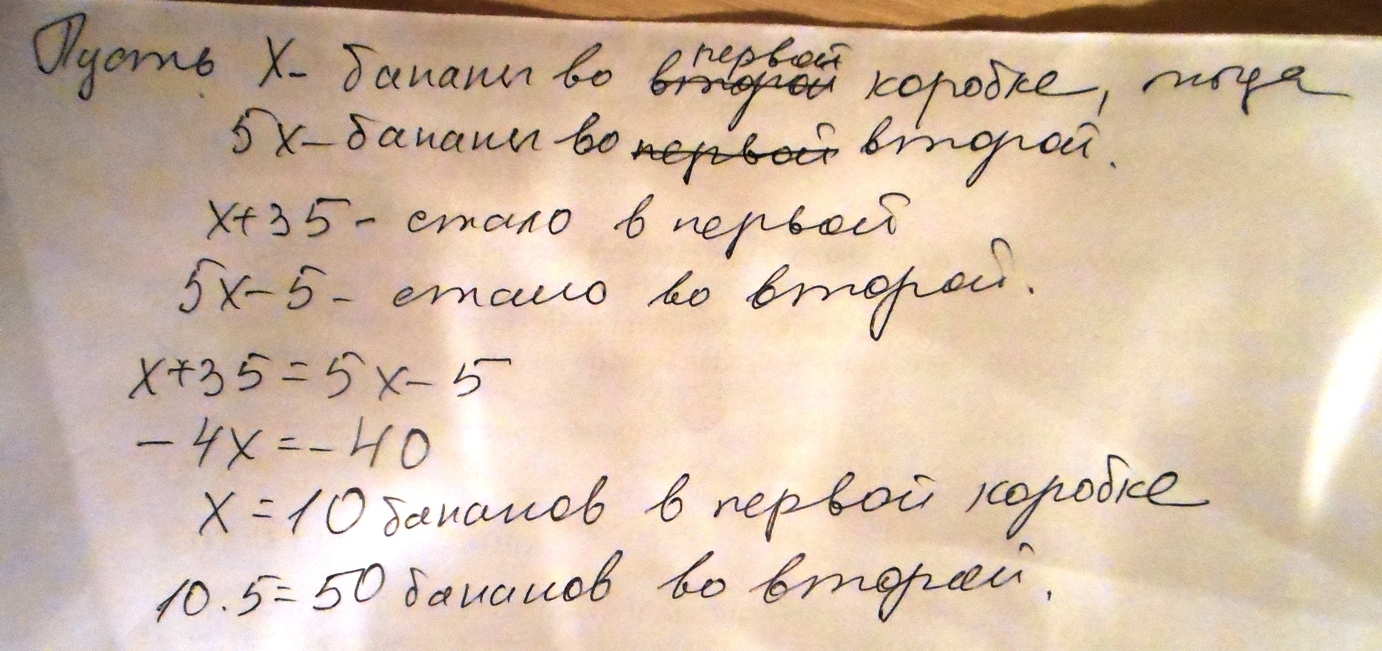 Пусть х - бананы во второй первой коробке, тогда
5х - бананы во первой второй.
х+35 - стало в первой
5х-5 - стало во второй.
х+35=5х-5
-4х=-40
х=10 бананов в первой коробке
10.5=50 бананов во второй.